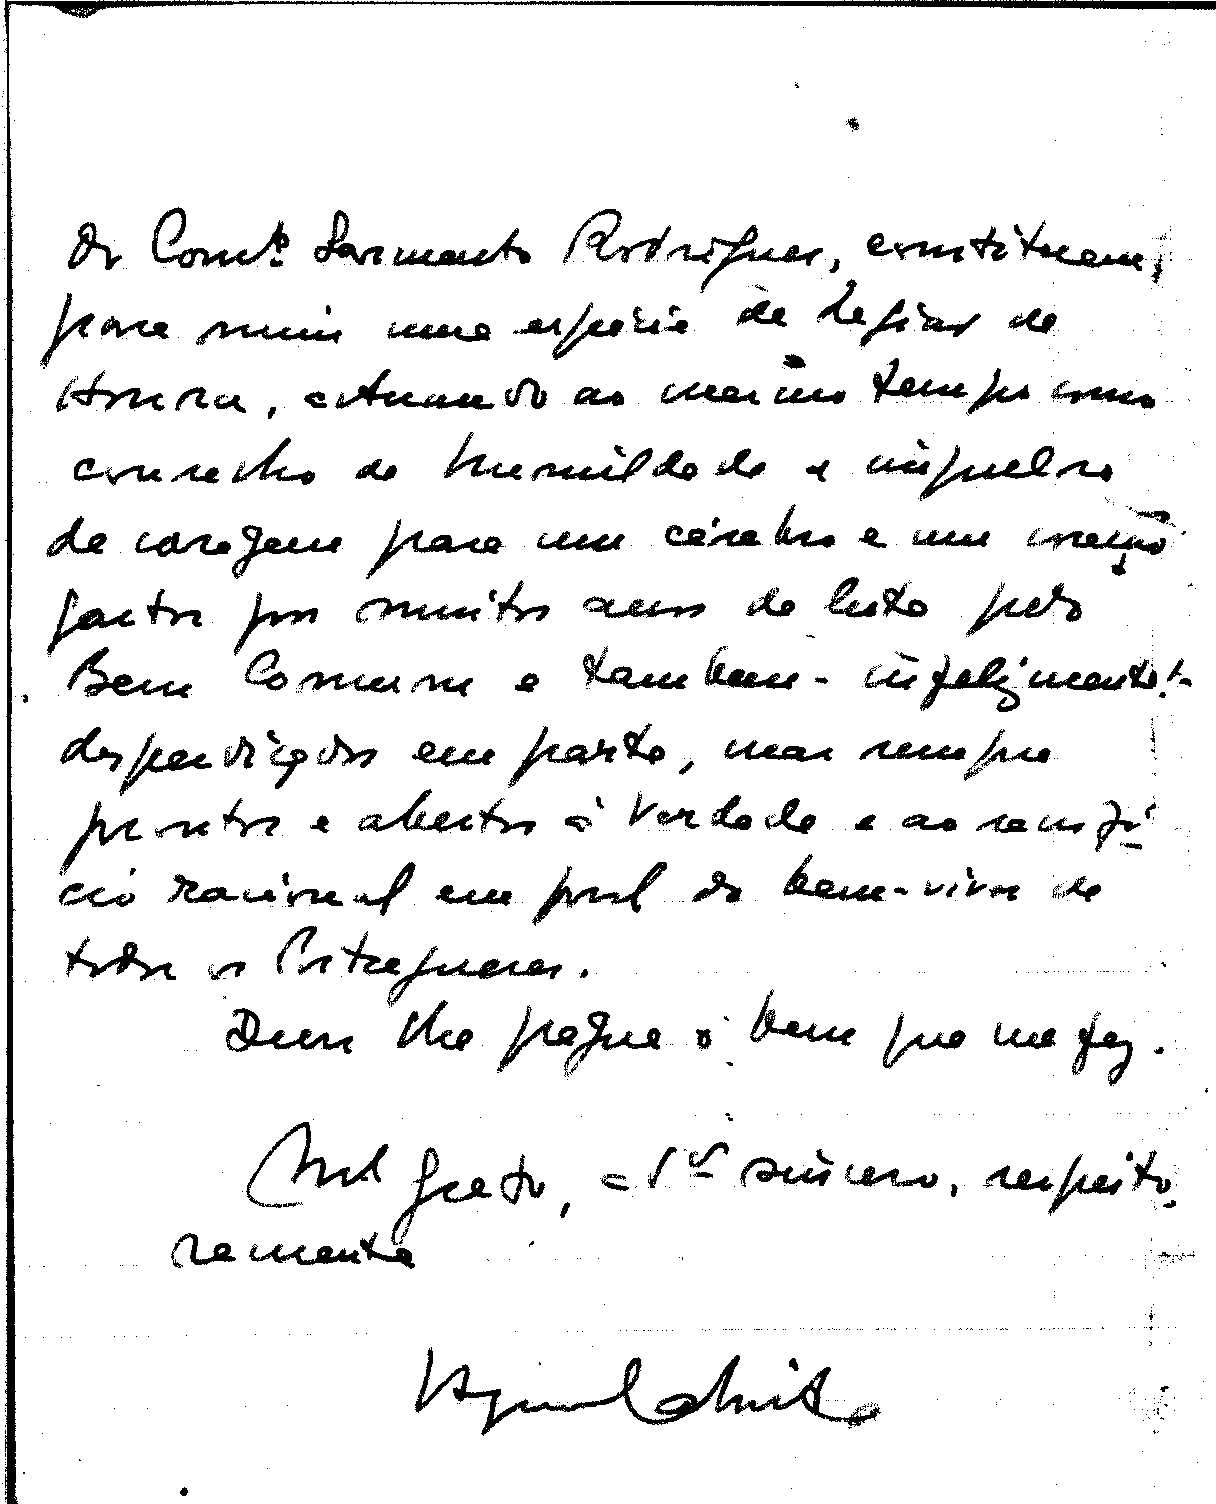 do Comte. Sarmento Rodrigues, constituem,
para mim uma espécie de Legião de
Honra, actuando ao mesmo tempo como
conselho de humildade e impulso
de coragem para um cérebro e um coração
gastos por muitos anos de luta pelo
Bem Comum e tambem - infelizmente! -
desperdiçados em parte, mas sempre
prontos e abertos à Verdade e ao sacrifí-
cio racional em prol do bem-viver de
todos os Portugueses.
Deus lhe pague o bem que me fez.
Mt. grato, e sincero, respeito
samente